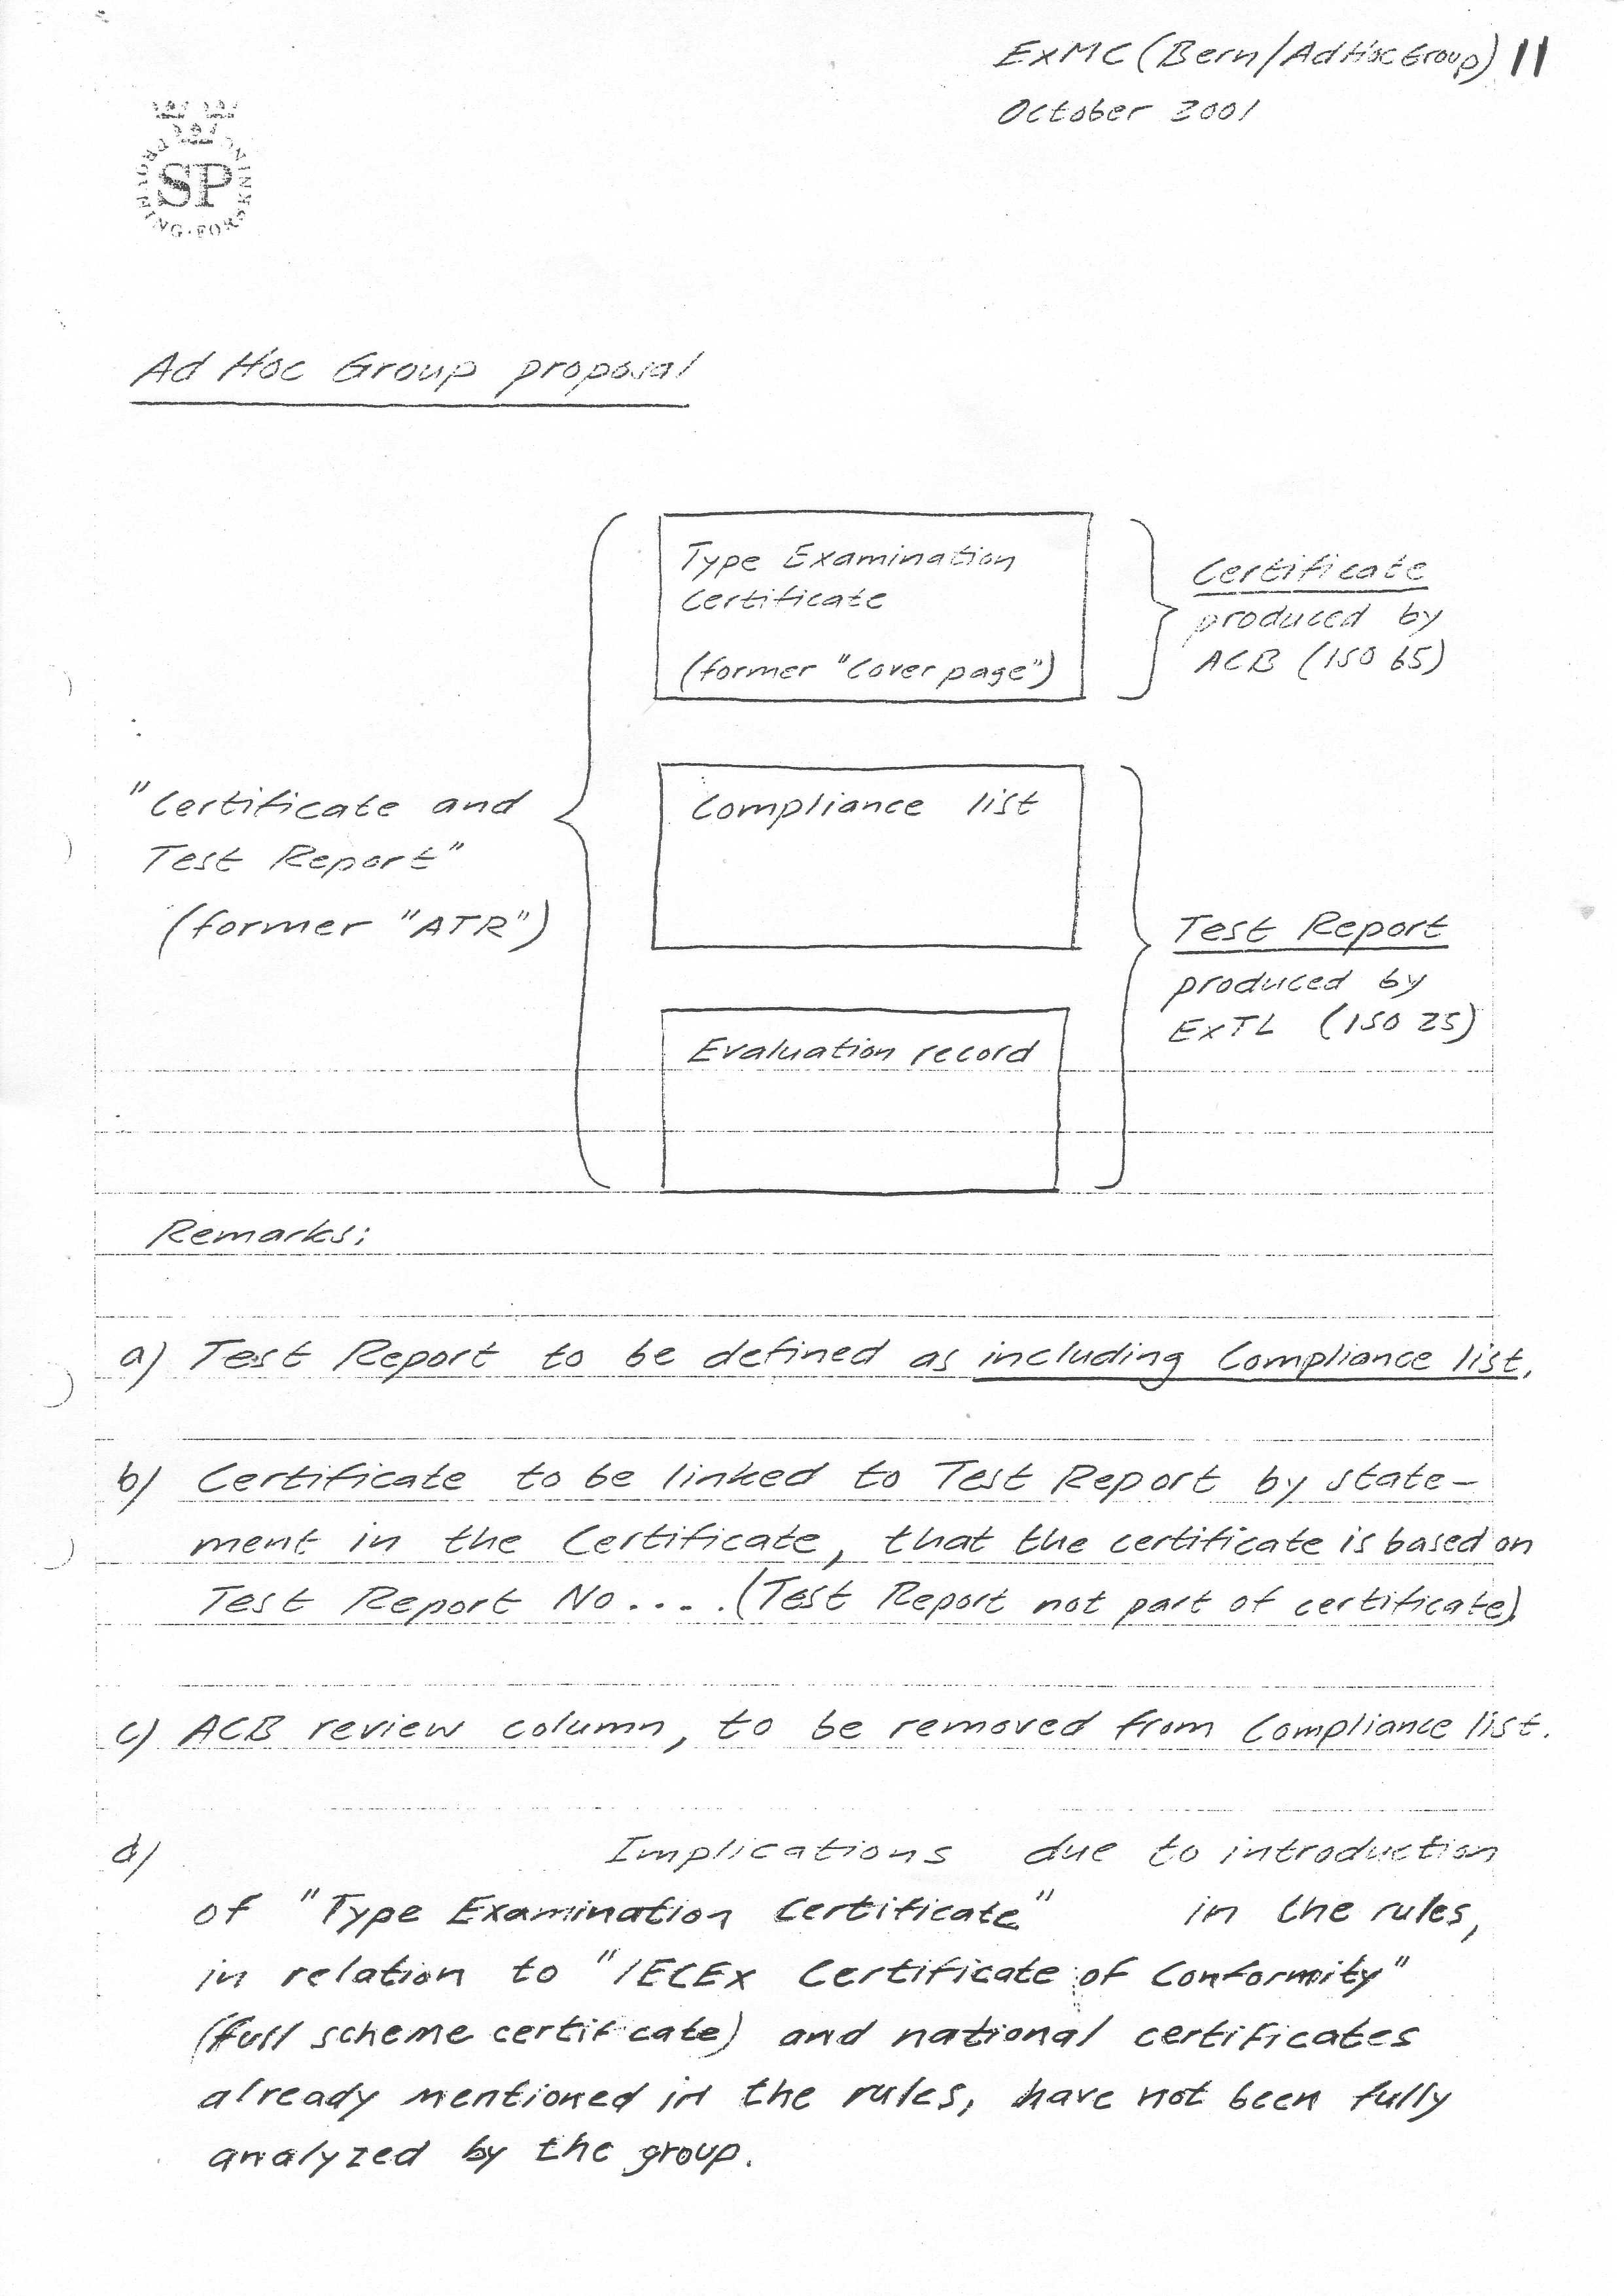 ExMC (Bern/AdHocGroup) 11
October 2001
SP
Ad Hoc Group proposal
Type Examination
Certificate
(former "Cover page")
Certificate
produced by
ACB (ISO 65)
"Certificate and
Test Report"
(former "ATR")
Compliance list
Test Report
produced by
ExTL (ISO 25)
Evaluation record
Remarks:
a) Test Report to be defined as including Compliance list.
b) Certificate to be linked to Test Report by state-
ment in the Certificate, that the certificate is based on
Test Report No..... (Test Report not part of certificate)
c) ACB review column, to be removed from Compliance list.
d) Implications due to introduction
of "Type Examination Certificate" in the rules,
in relation to "IECEx Certificate of Conformity"
(full scheme certificate) and national certificates
already mentioned in the rules, have not been fully
analyzed by the group.